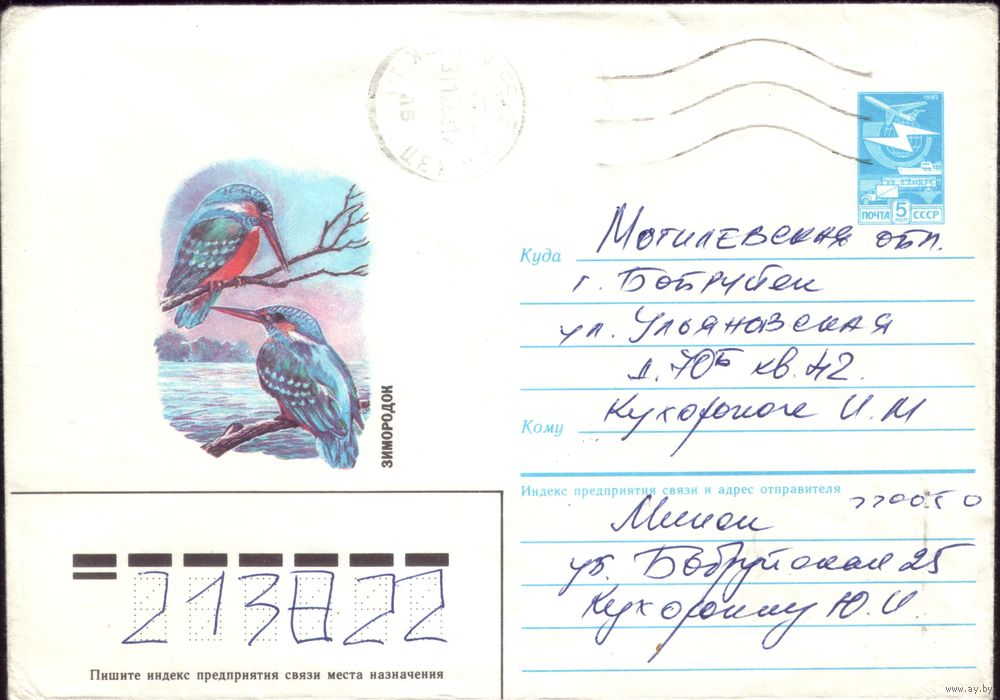 1982
ПОЧТА 5 КОП СССР
Куда Могилевская обл.
г. Бобруйск
ул. Ульяновская
д. 70Б кв. 42.
Кому И. М
ЗИМОРОДОК
Индекс предприятия связи и адрес отправителя
220050
Минск
ул. Бобруйская 25
Ю. И
213822
Пишите индекс предприятия связи места назначения
www.ay.by